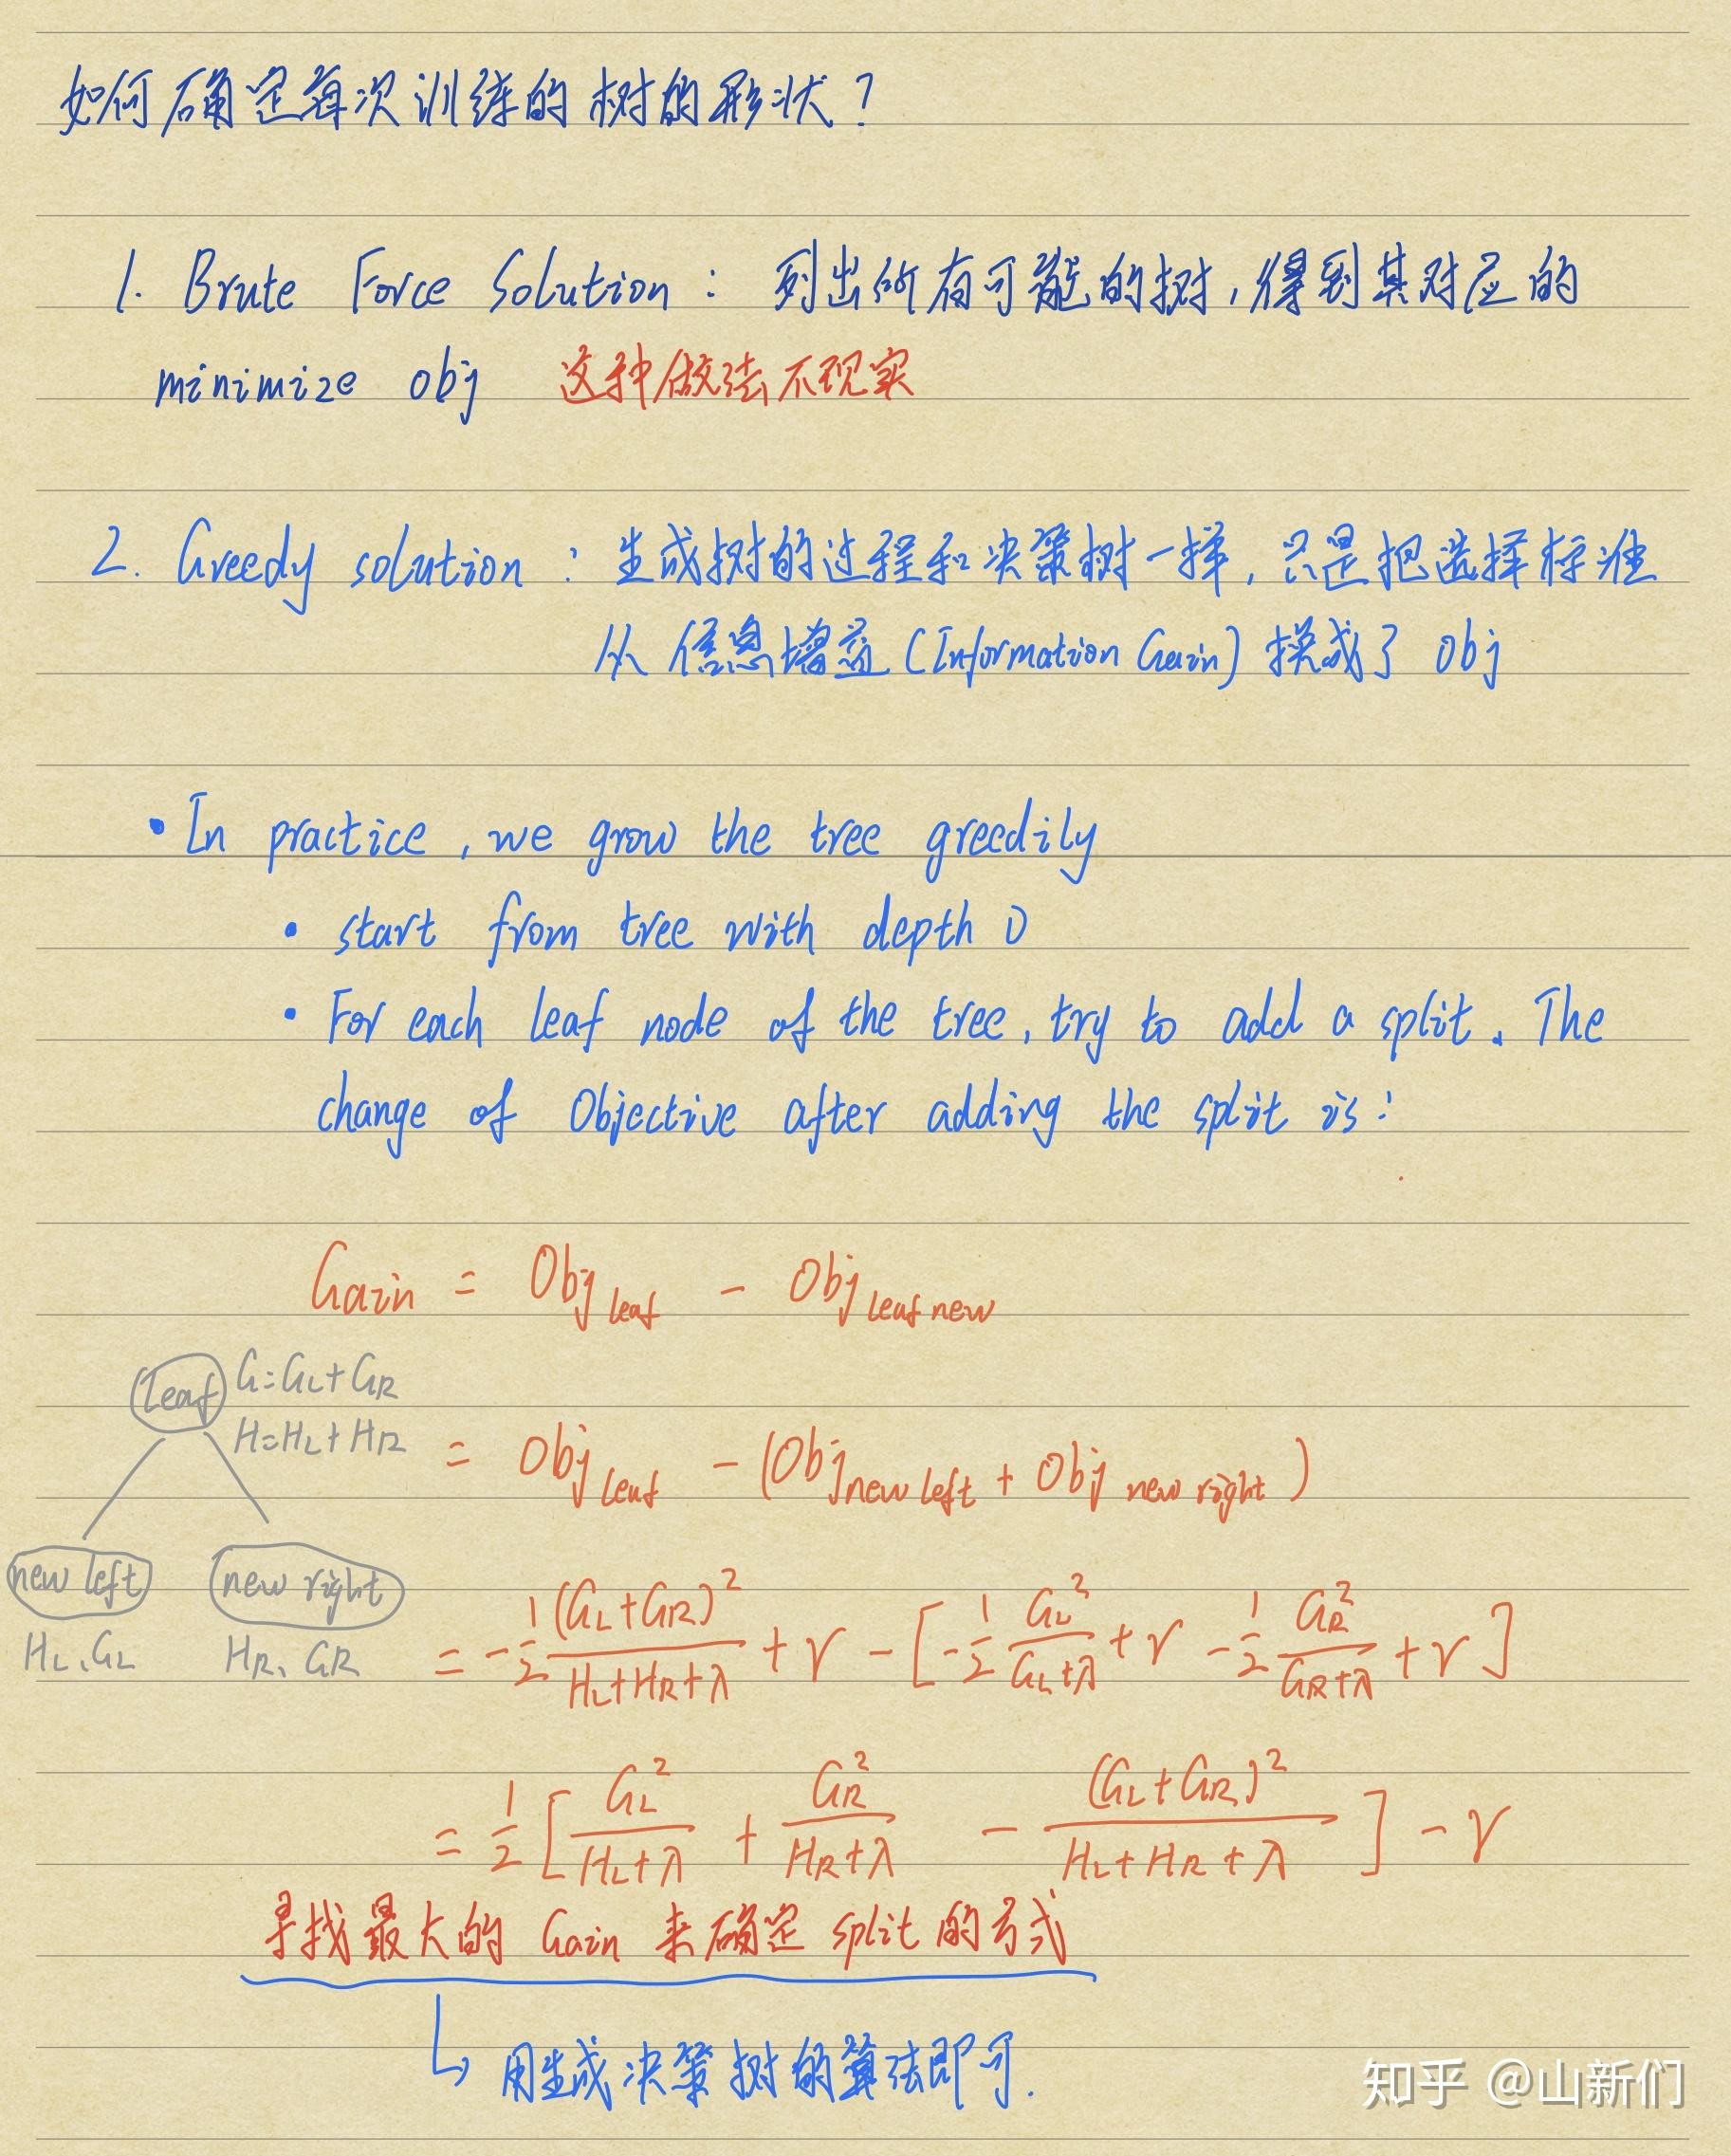 如何确定每次训练的树的形状？
1. Brute Force Solution : 列出所有可能的树,得到其对应的
minimize obj 这种做法不现实
2. Greedy solution : 生成树的过程和决策树一样,只是把选择标准
从信息增益 (Information Gain) 换成了 obj
• In practice, we grow the tree greedily
• start from tree with depth 0
• For each leaf node of the tree, try to add a split. The
change of Objective after adding the split is:
Gain = Obj leaf - Obj leaf new
leaf G=GL+GR
H=HL+HR
= Obj leaf - (Obj new left + Obj new right)
new left new right
HL、GL HR、GR
= -1/2 (GL+GR)²/(HL+HR+λ) + γ - [-1/2 GL²/(GL+λ) + γ -1/2 GR²/(GR+λ) + γ]
= 1/2 [GL²/(HL+λ) + GR²/(HR+λ) - (GL+GR)²/(HL+HR+λ)] - γ
寻找最大的 Gain 来确定 split 的方式
↳ 用生成决策树的算法即可.
知乎 @山新们